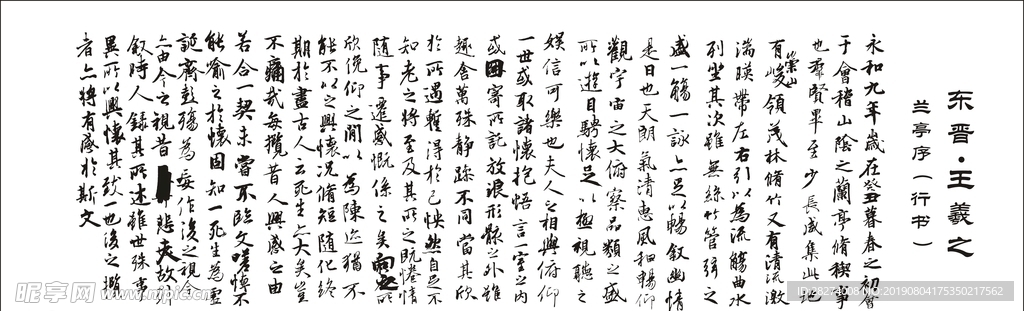 东晋·王羲之
兰亭序（行书）
永和九年歲在癸丑暮春之初會
于會稽山陰之蘭亭脩禊事
也羣賢畢至少長咸集此地
有崇山峻領茂林脩竹又有清流激
湍暎帶左右引以為流觴曲水
列坐其次雖無絲竹管弦之
盛一觴一詠亦足以暢敘幽情
是日也天朗氣清惠風和暢仰
觀宇宙之大俯察品類之盛
所以遊目騁懷足以極視聽之
娛信可樂也夫人之相與俯仰
一世或取諸懷抱悟言一室之內
或因寄所託放浪形骸之外雖
趣舍萬殊靜躁不同當其欣
於所遇蹔得於己怏然自足不
知老之將至及其所之既惓情
隨事遷感慨係之矣向之所
欣俛仰之閒以為陳迹猶不
能不以之興懷況脩短隨化終
期於盡古人云死生亦大矣豈
不痛哉每攬昔人興感之由
若合一契未嘗不臨文嗟悼不
能喻之於懷固知一死生為虛
誕齊彭殤為妄作後之視今
亦由今之視昔悲夫故列
敘時人錄其所述雖世殊事
異所以興懷其致一也後之攬
者亦將有感於斯文
昵享网 www.nipic.cn
ID:28274008 NO:20190804175350217562